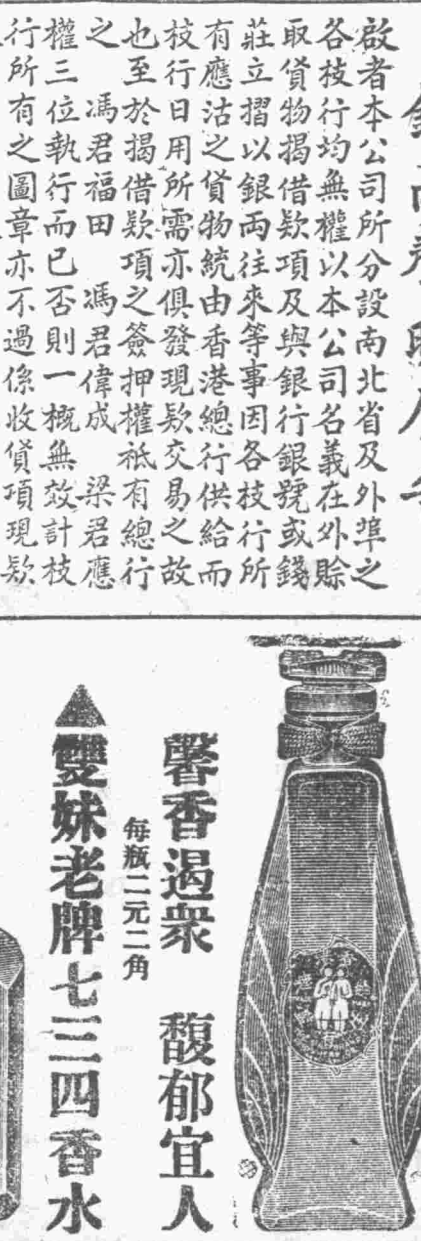 啟者本公司所分設南北省及外埠之
各枝行均無權以本公司名義在外賒
取貨物揭借欵項及與銀行銀號或錢
莊立摺以銀両往來等事因各枝行所
有應沽之貨物統由香港總行供給而
枝行日用所需亦俱發現欵交易之故
也至於揭借欵項之簽押權祗有總行
之 馮君福田 馮君偉成 梁君應
權三位執行而已否則一概無效計枝
行所有之圖章亦不過係收貨項現欵
馨香遏衆 馥郁宜人
每瓶二元二角
雙妹老牌七三四香水